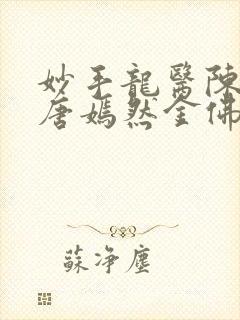 妙手龍醫陳
唐嫣然全佛
蘇淨塵